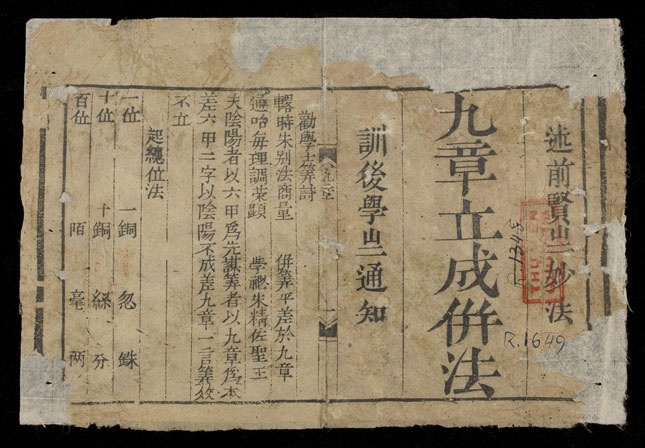 述前賢 妙法
九章立成併法
訓後學 通知
勸學士筭詩
時朱別法商量 併筭平差於九章
通咍每理調榮顯 學 朱精佐聖王
夫陰陽者以六甲為先講筭者以九章為本
差六甲二字以陰陽不成差九章一言筭效
不立
起總位法
一位 一銅 忽 銖
十位 十銅 絲 分
百位 陌 毫 两
R.1649